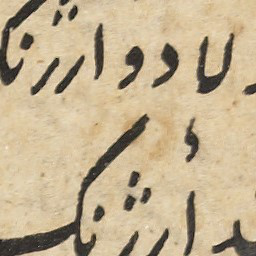 لاد و ارژنگ
ارژنگ